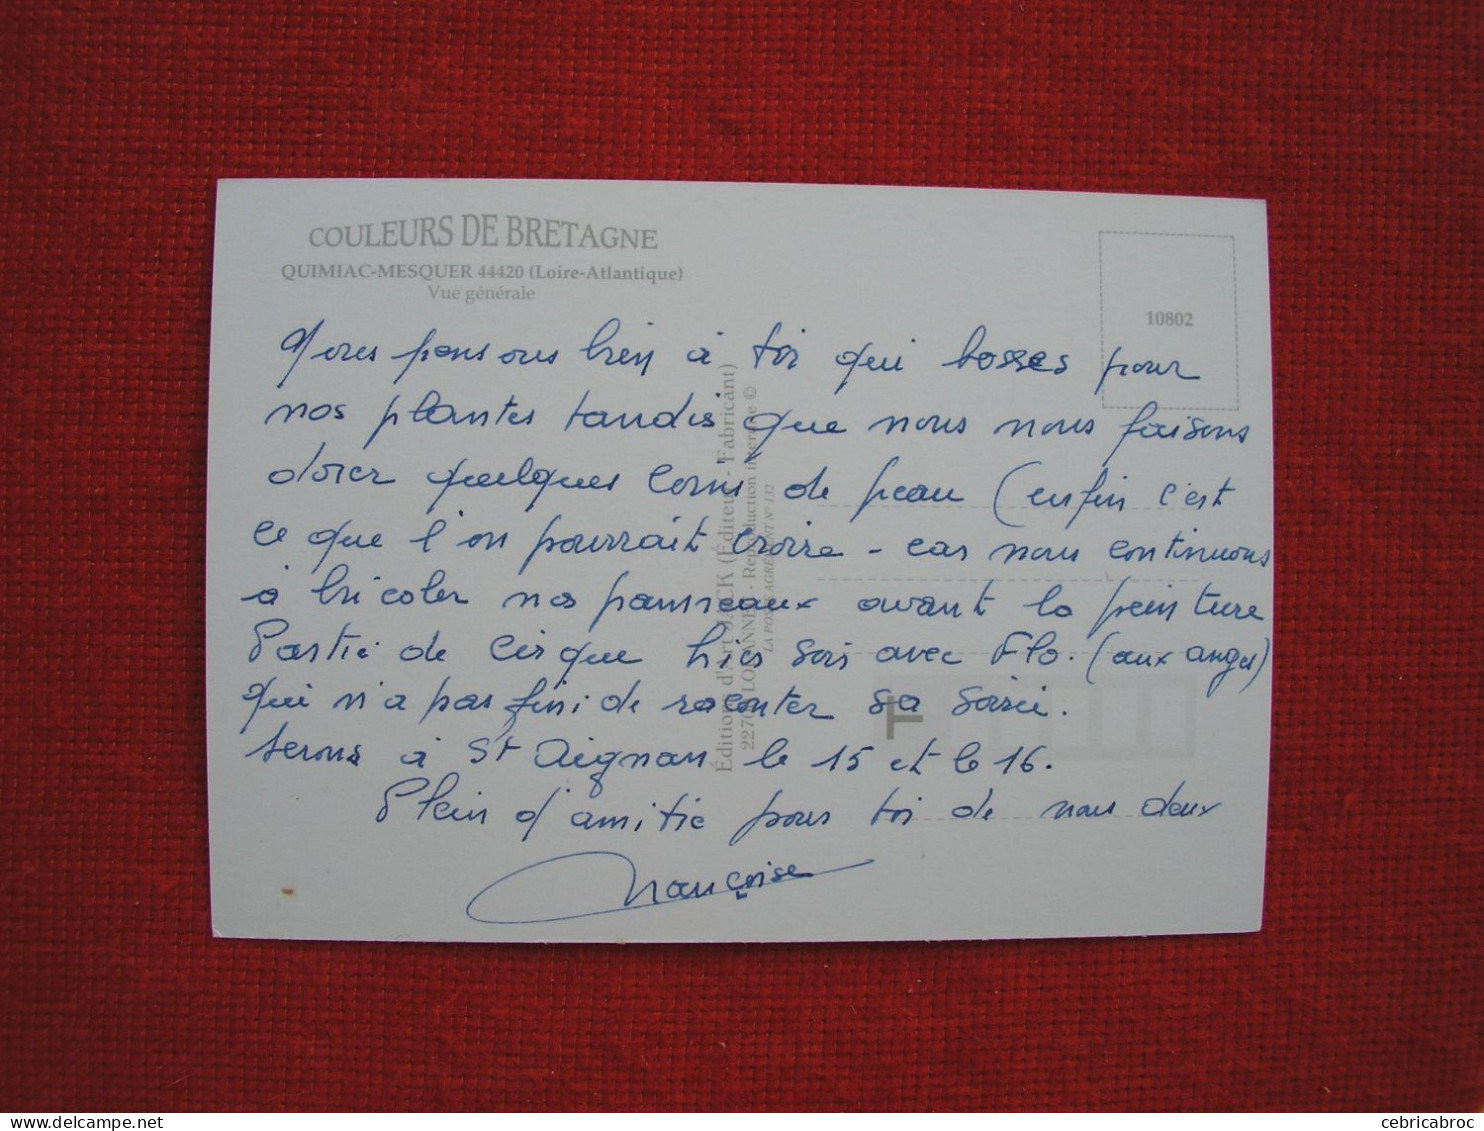 COULEURS DE BRETAGNE
QUIMIAC-MESQUER 44420 (Loire-Atlantique)
Vue générale
10802
Nous pensons bien à toi qui bosses pour
nos plantes tandis que nous nous faisons
dorer quelques coins de peau (enfin c'est
ce que l'on pourrait croire - car nous continuons
à bricoler nos panneaux avant la peinture
Partie de cirque hier soir avec Flo. (aux anges)
qui n'a pas fini de raconter sa soirée.
serons à St Aignan le 15 et le 16.
Plein d'amitié pour toi de nous deux
Françoise
Éditions d'Art JACK (Éditeur - Fabricant)
LOUANNEC - Reproduction interdite ©
LA POSTE AGRÉMENT N° 132
cebricabroc